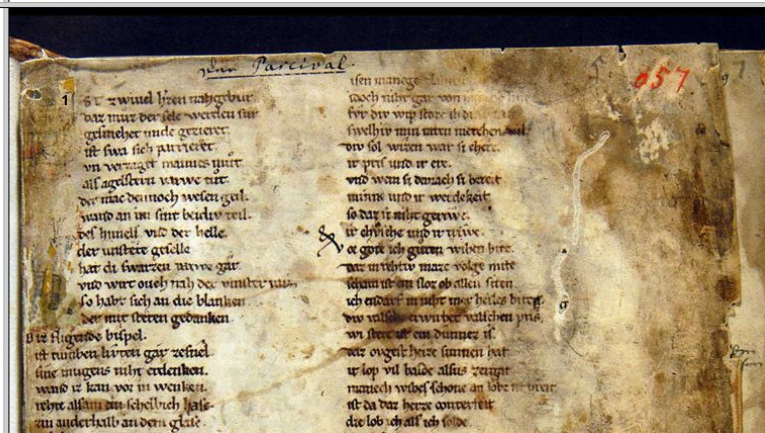 Parcival.
057
1
zwiuel h'zen nahgebur
daz muz der sele werden sur
gesmehet unde gezieret
ist swa sich parrieret
vn verzaget mannes mut
als agelstern varwe tut.
der mac dennoch wesen geil.
wand an im sint beidiv teil.
des himels vnd der helle.
der unstete geselle
hat di swarzen varwe gar
vnd wirt ouch nah der vinster
so habt sich an die blanken.
der mit steten gedanken.
Diz fligende bispel.
ist tumben luten gar zesnel.
sine mugens niht erdenken.
wand iz kan vor in wenken.
rehte alsam ein schellich hase.
zin anderhalb an dem glase.
isen manege
idoch niht gar von
fvr div wip stoze ih
swelhiv min raten merchen wil.
div sol wizen war si chere.
ir pris und ir ere.
vnd wem si danach si bereit
minne und ir werdekeit
so daz si niht gerivwe.
ir chvsche und ir triwe.
or gote ich guten wiben bite.
daz in rehtiv maze volge mite
scham ist ein sloz ob allen siten
ich endarf in niht mer heiles biten
div valsche erwirbet valschen pris.
wi stete ist ein dunnez is.
daz ovgest heize sunnen hat
ir lop vil balde alsus zergat
manech wibes schone an lobe ist breit
ist da daz herze conterfeit
die lob ich als ich solde.